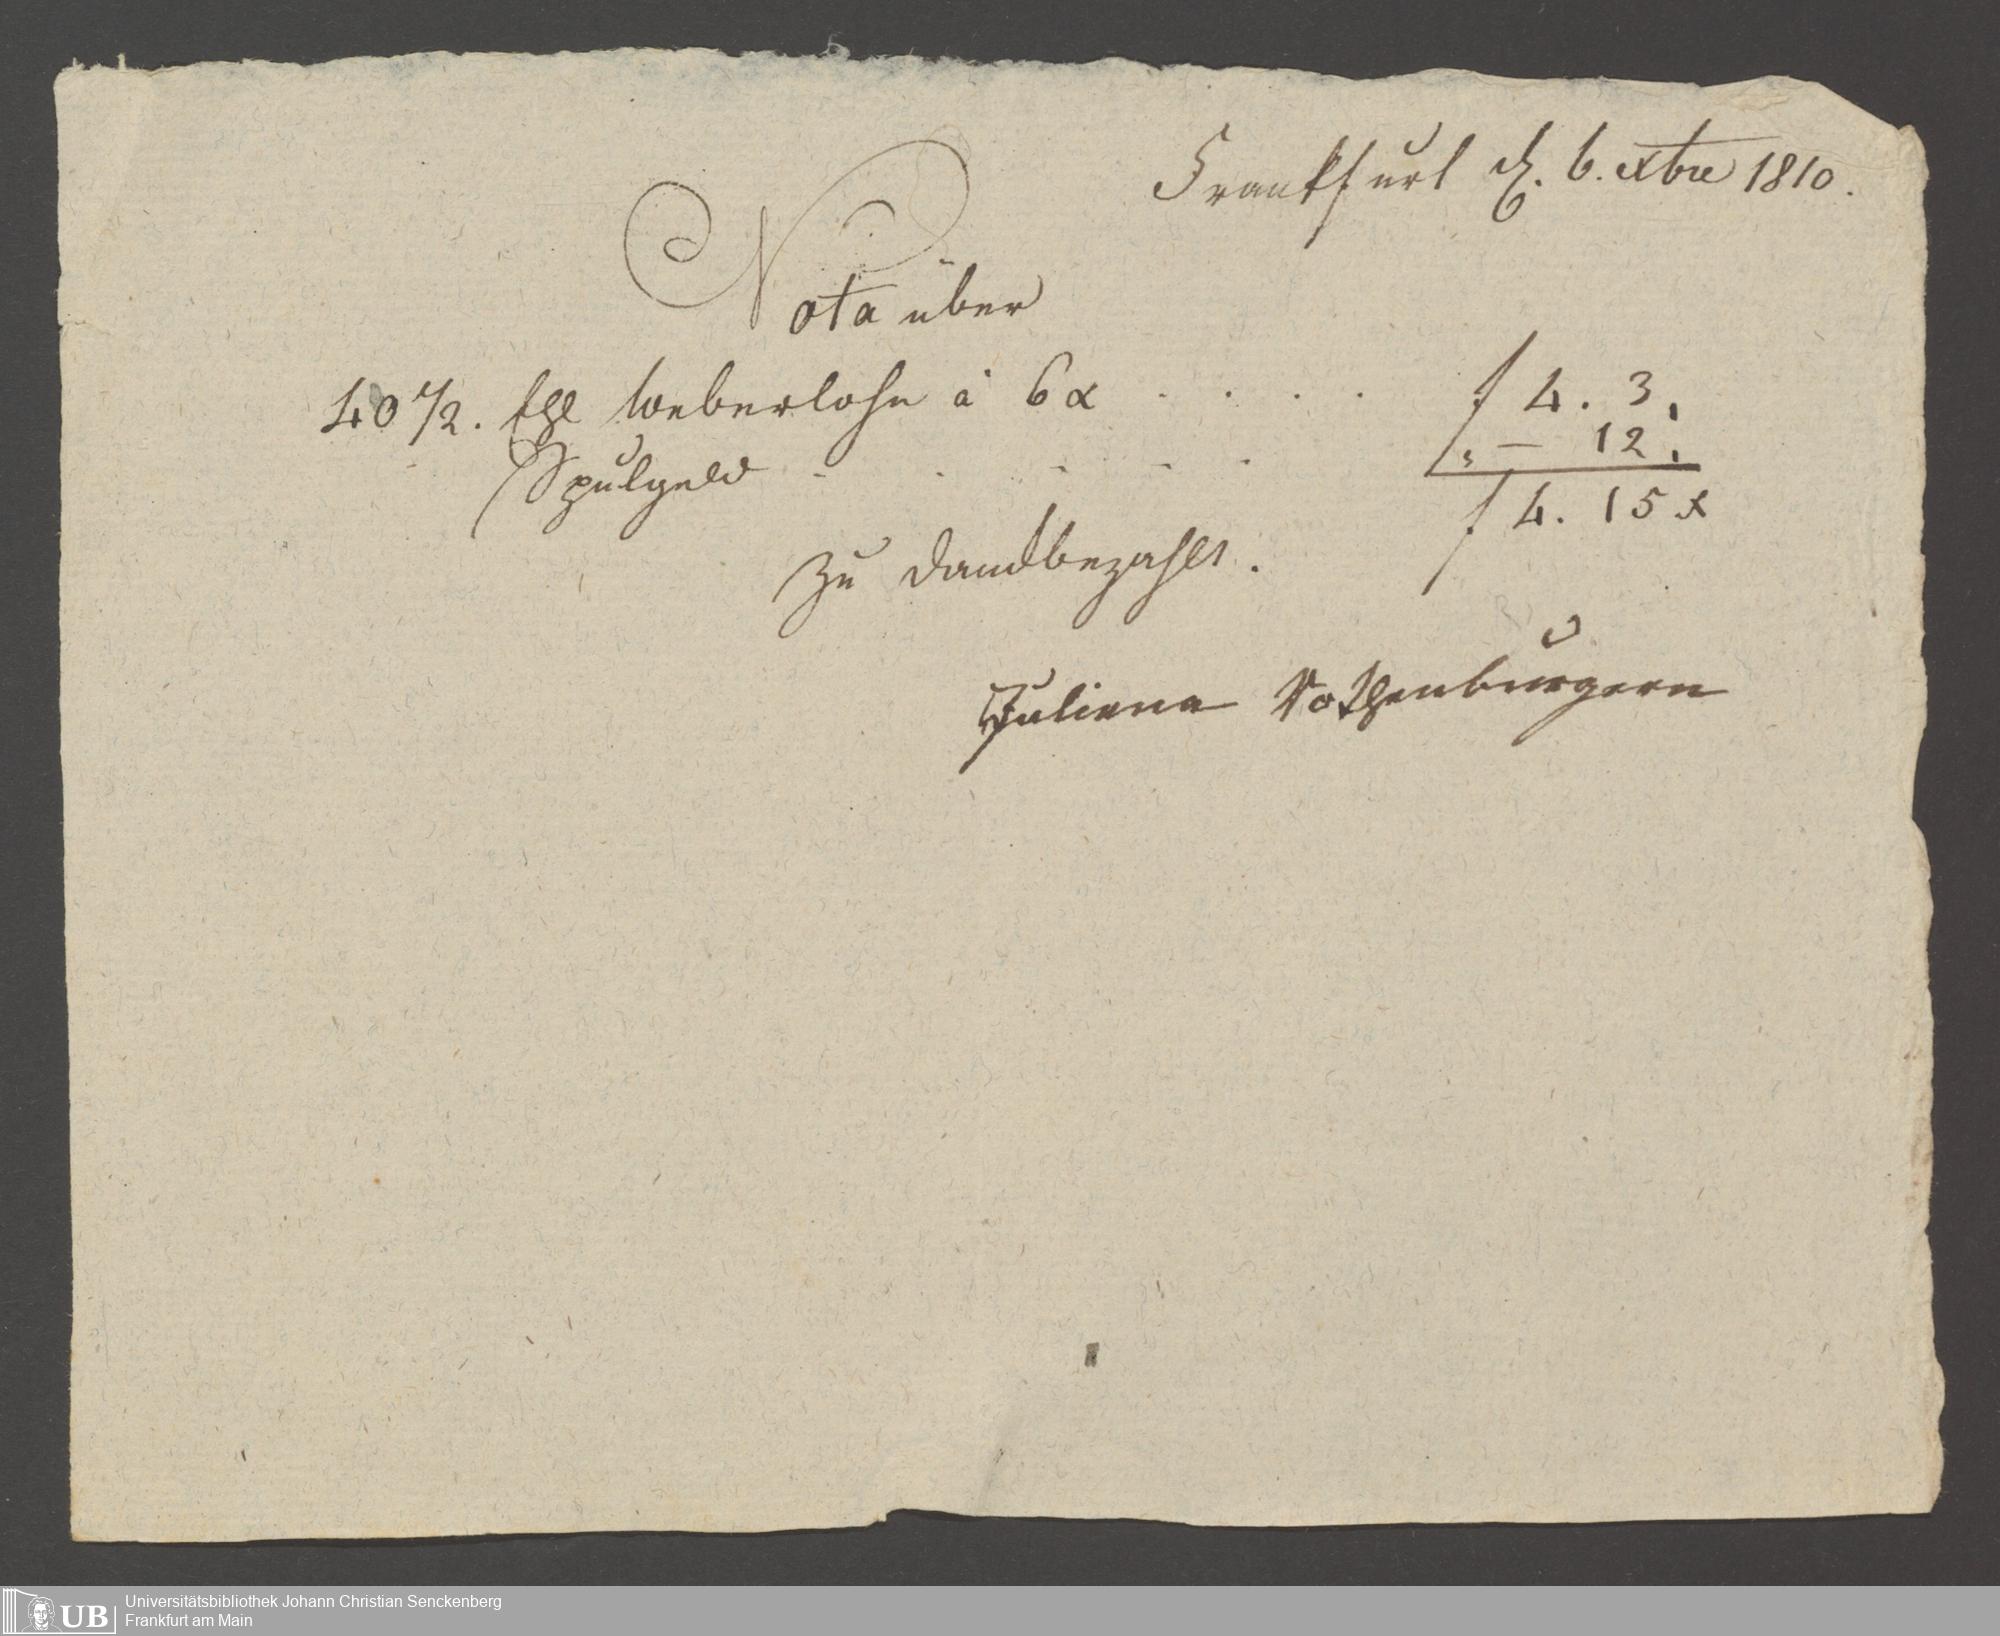 Frankfurt d. 6. xbre 1810.
Nota über
40 1/2. Ehl Weberlohn à 6 x . . . . f 4. 3.
Spulgeld - . . . . „ — 12.
f 4. 15 x
Zu Danckbezahlt.
Juliana Rothenburgern
Universitätsbibliothek Johann Christian Senckenberg
Frankfurt am Main
UB